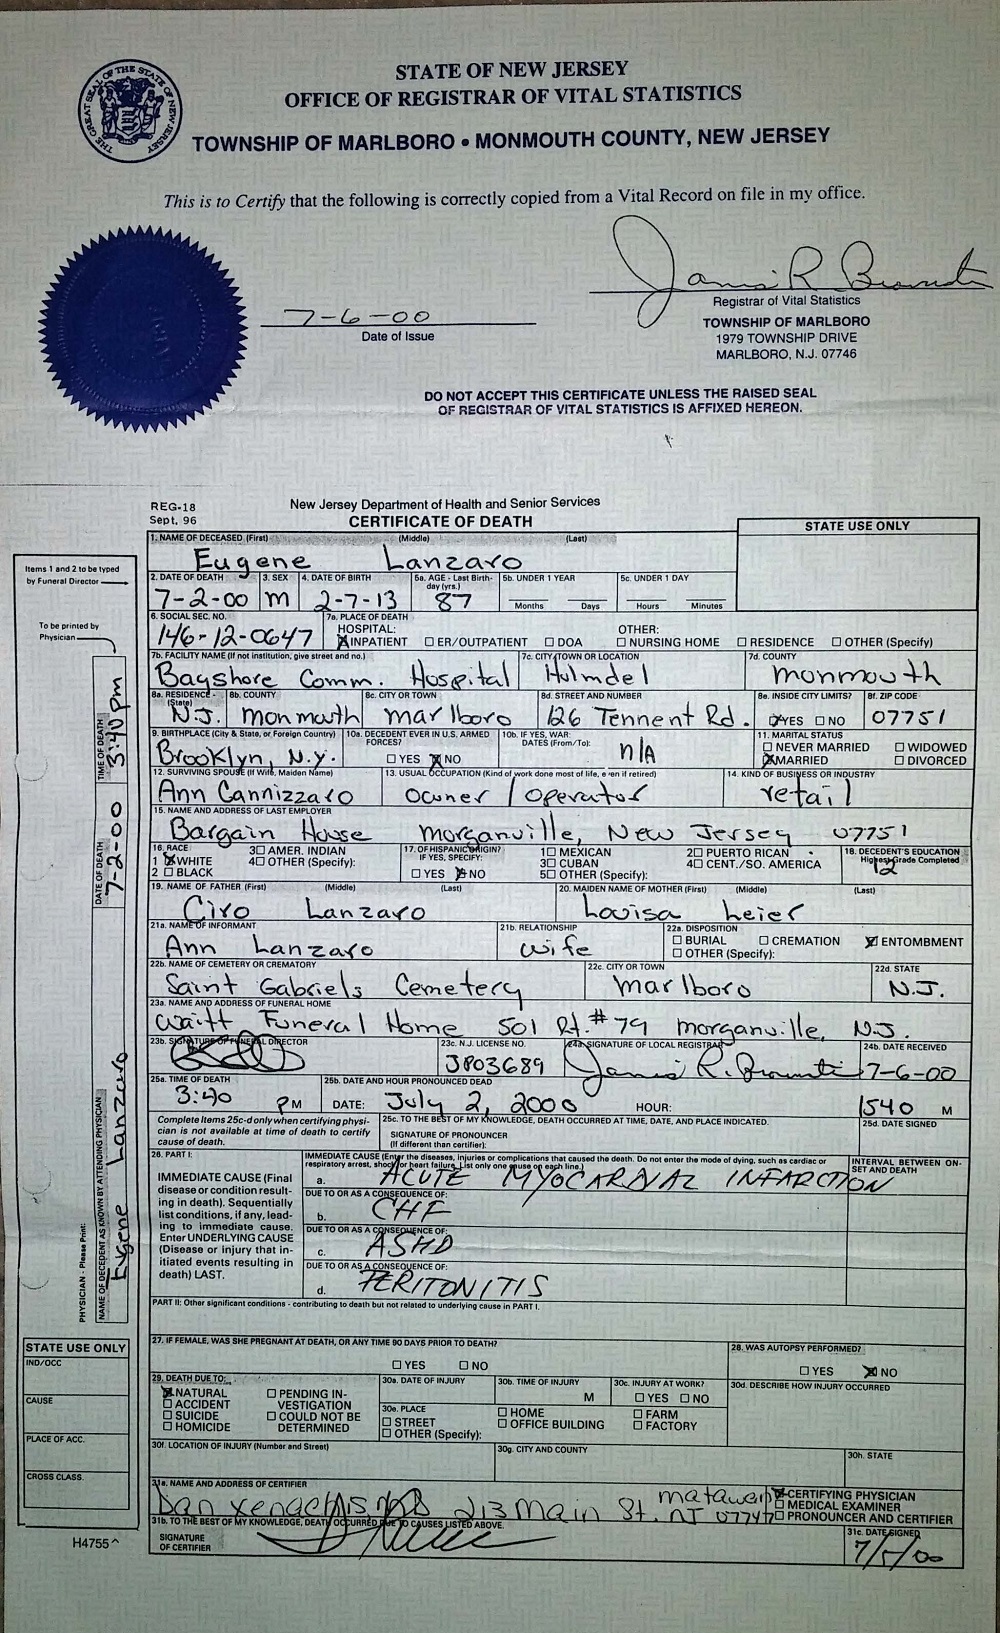 THE GREAT SEAL OF THE STATE OF NEW JERSEY
STATE OF NEW JERSEY
OFFICE OF REGISTRAR OF VITAL STATISTICS
TOWNSHIP OF MARLBORO • MONMOUTH COUNTY, NEW JERSEY
This is to Certify that the following is correctly copied from a Vital Record on file in my office.
7-6-00
Date of Issue
Registrar of Vital Statistics
TOWNSHIP OF MARLBORO
1979 TOWNSHIP DRIVE
MARLBORO, N.J. 07746
DO NOT ACCEPT THIS CERTIFICATE UNLESS THE RAISED SEAL
OF REGISTRAR OF VITAL STATISTICS IS AFFIXED HEREON.
REG-18
Sept. 96
New Jersey Department of Health and Senior Services
CERTIFICATE OF DEATH
STATE USE ONLY
1. NAME OF DECEASED (First) (Middle) (Last)
Eugene Lanzaro
2. DATE OF DEATH 3. SEX 4. DATE OF BIRTH 5a. AGE - Last Birthday (yrs.) 5b. UNDER 1 YEAR 5c. UNDER 1 DAY
7-2-00 M 2-7-13 87 Months Days Hours Minutes
6. SOCIAL SEC. NO. 7a. PLACE OF DEATH
146-12-0647 HOSPITAL: OTHER:
INPATIENT ER/OUTPATIENT DOA NURSING HOME RESIDENCE OTHER (Specify)
7b. FACILITY NAME (If not institution, give street and no.) 7c. CITY/TOWN OR LOCATION 7d. COUNTY
Bayshore Comm. Hospital Holmdel Monmouth
8a. RESIDENCE - (State) 8b. COUNTY 8c. CITY OR TOWN 8d. STREET AND NUMBER 8e. INSIDE CITY LIMITS? 8f. ZIP CODE
N.J. Monmouth Marlboro 126 Tennent Rd. YES NO 07751
9. BIRTHPLACE (City & State, or Foreign Country) 10a. DECEDENT EVER IN U.S. ARMED FORCES? 10b. IF YES, WAR: DATES (From/To): 11. MARITAL STATUS
Brooklyn, N.Y. YES NO n/A NEVER MARRIED WIDOWED
MARRIED DIVORCED
12. SURVIVING SPOUSE (If Wife, Maiden Name) 13. USUAL OCCUPATION (Kind of work done most of life, even if retired) 14. KIND OF BUSINESS OR INDUSTRY
Ann Cannizzaro owner / operator retail
15. NAME AND ADDRESS OF LAST EMPLOYER
Bargain House Morganville, New Jersey 07751
16. RACE 3 AMER. INDIAN 17. OF HISPANIC ORIGIN? 1 MEXICAN 2 PUERTO RICAN 18. DECEDENT'S EDUCATION
1 WHITE 4 OTHER (Specify): IF YES, SPECIFY: 3 CUBAN 4 CENT./SO. AMERICA Highest Grade Completed
2 BLACK YES NO 5 OTHER (Specify): 12
19. NAME OF FATHER (First) (Middle) (Last) 20. MAIDEN NAME OF MOTHER (First) (Middle) (Last)
Ciro Lanzaro Louisa Leier
21a. NAME OF INFORMANT 21b. RELATIONSHIP 22a. DISPOSITION
Ann Lanzaro wife BURIAL CREMATION ENTOMBMENT
OTHER (Specify):
22b. NAME OF CEMETERY OR CREMATORY 22c. CITY OR TOWN 22d. STATE
Saint Gabriels Cemetery Marlboro N.J.
23a. NAME AND ADDRESS OF FUNERAL HOME
Waitt Funeral Home 501 Rt. #79 Morganville, N.J.
23b. SIGNATURE OF FUNERAL DIRECTOR 23c. N.J. LICENSE NO. 24a. SIGNATURE OF LOCAL REGISTRAR 24b. DATE RECEIVED
JP03689 7-6-00
25a. TIME OF DEATH 25b. DATE AND HOUR PRONOUNCED DEAD
3:40 PM DATE: July 2, 2000 HOUR: 1540 M
Complete Items 25c-d only when certifying physician is not available at time of death to certify cause of death.
25c. TO THE BEST OF MY KNOWLEDGE, DEATH OCCURRED AT TIME, DATE, AND PLACE INDICATED. 25d. DATE SIGNED
SIGNATURE OF PRONOUNCER
(If different than certifier):
26. PART I: IMMEDIATE CAUSE (Enter the diseases, injuries or complications that caused the death. Do not enter the mode of dying, such as cardiac or respiratory arrest, shock or heart failure. List only one cause on each line.) INTERVAL BETWEEN ONSET AND DEATH
IMMEDIATE CAUSE (Final disease or condition resulting in death). Sequentially list conditions, if any, leading to immediate cause. Enter UNDERLYING CAUSE (Disease or injury that initiated events resulting in death) LAST.
a. ACUTE MYOCARDIAL INFARCTION
DUE TO OR AS A CONSEQUENCE OF:
b. CHF
DUE TO OR AS A CONSEQUENCE OF:
c. ASHD
DUE TO OR AS A CONSEQUENCE OF:
d. PERITONITIS
PART II: Other significant conditions - contributing to death but not related to underlying cause in PART I.
27. IF FEMALE, WAS SHE PREGNANT AT DEATH, OR ANY TIME 90 DAYS PRIOR TO DEATH? 28. WAS AUTOPSY PERFORMED?
YES NO YES NO
29. DEATH DUE TO: 30a. DATE OF INJURY 30b. TIME OF INJURY 30c. INJURY AT WORK? 30d. DESCRIBE HOW INJURY OCCURRED
NATURAL PENDING INVESTIGATION M YES NO
ACCIDENT
SUICIDE COULD NOT BE DETERMINED
HOMICIDE
30e. PLACE HOME FARM
STREET OFFICE BUILDING FACTORY
OTHER (Specify):
30f. LOCATION OF INJURY (Number and Street) 30g. CITY AND COUNTY 30h. STATE
31a. NAME AND ADDRESS OF CERTIFIER
Dan Xenachis MD 213 Main St. Matawan NJ 07747
CERTIFYING PHYSICIAN
MEDICAL EXAMINER
PRONOUNCER AND CERTIFIER
31b. TO THE BEST OF MY KNOWLEDGE, DEATH OCCURRED DUE TO CAUSES LISTED ABOVE. 31c. DATE SIGNED
SIGNATURE OF CERTIFIER 7/5/00
Items 1 and 2 to be typed
by Funeral Director
To be printed by
Physician
PHYSICIAN - Please Print:
NAME OF DECEDENT AS KNOWN BY ATTENDING PHYSICIAN
Eugene Lanzaro
DATE OF DEATH
7-2-00
TIME OF DEATH
3:40 pm
STATE USE ONLY
IND/OCC
CAUSE
PLACE OF ACC.
CROSS CLASS.
H4755